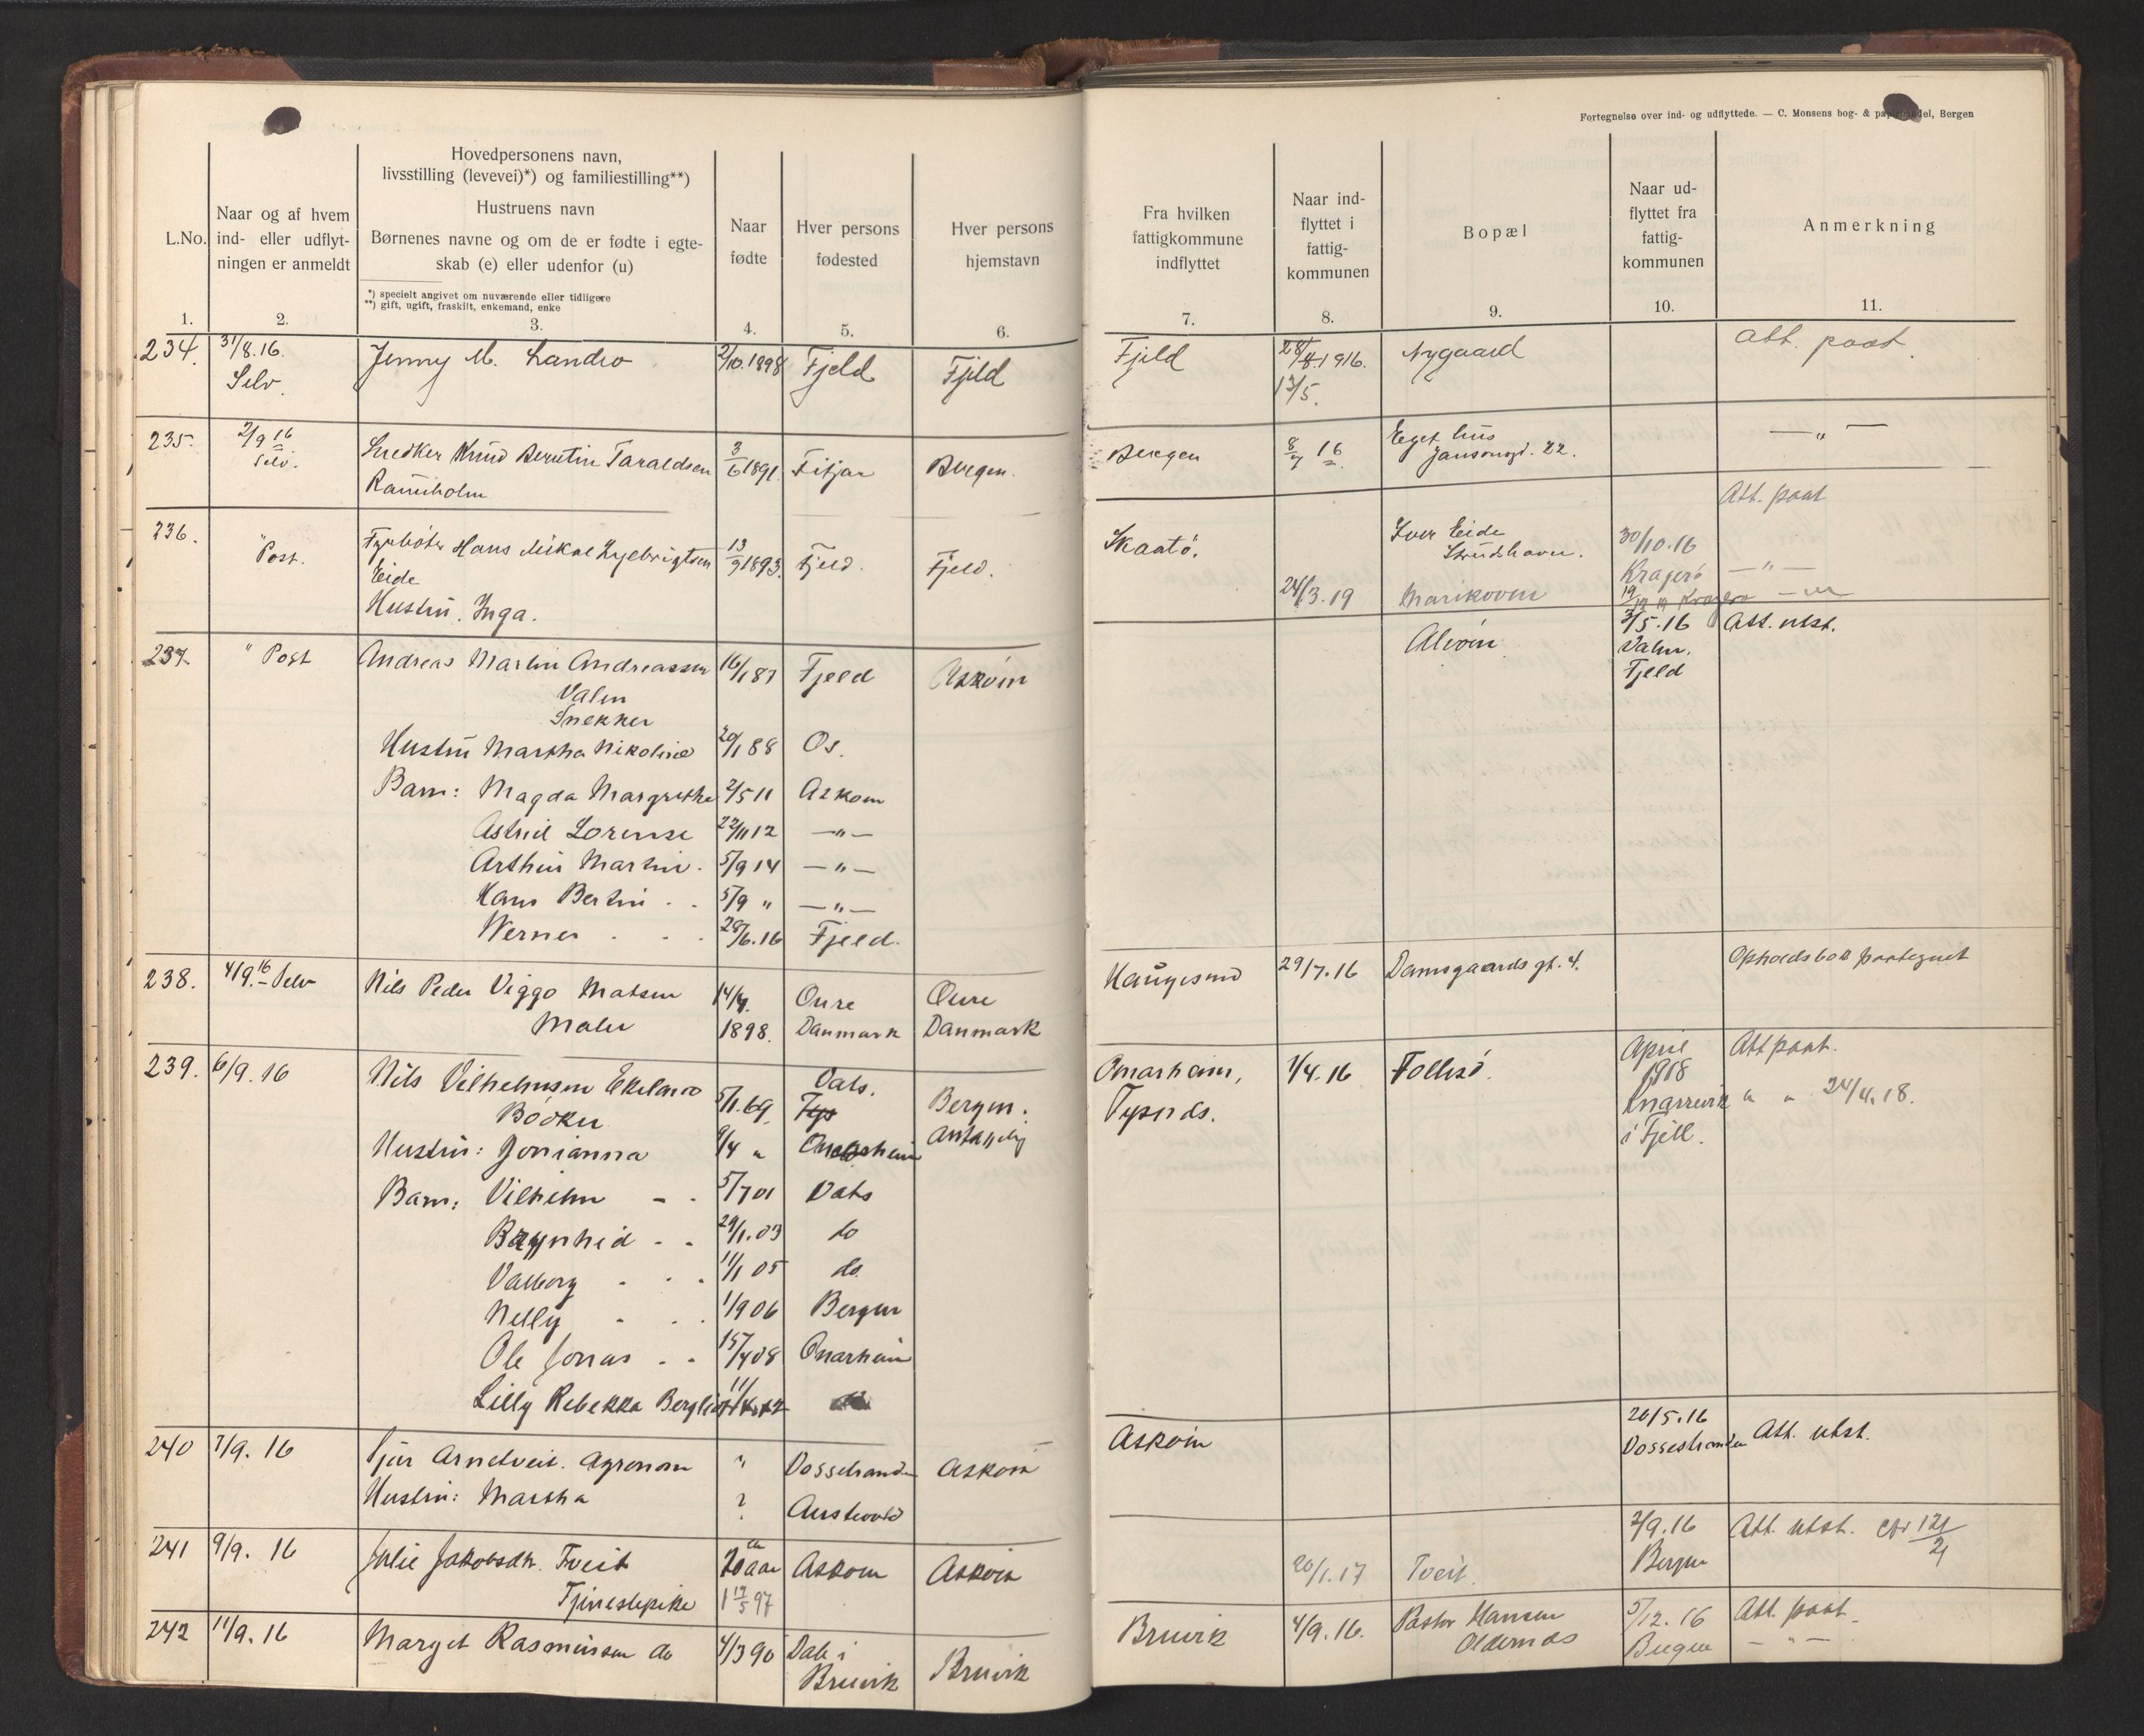 Fortegnelse over ind- og udflyttede. — C. Monsens bog- & papirhandel, Bergen
L.No.
Naar og af hvem
ind- eller udflyt-
ningen er anmeldt
Hovedpersonens navn,
livsstilling (levevei)*) og familiestilling**)
Hustruens navn
Børnenes navne og om de er fødte i egte-
skab (e) eller udenfor (u)
*) specielt angivet om nuværende eller tidligere
**) gift, ugift, fraskilt, enkemand, enke
Naar
fødte
Hver persons
fødested
Hver persons
hjemstavn
Fra hvilken
fattigkommune
indflyttet
Naar ind-
flyttet i
fattig-
kommunen
Bopæl
Naar ud-
flyttet fra
fattig-
kommunen
Anmerkning
1. 2. 3. 4. 5. 6. 7. 8. 9. 10. 11.
234. 31/8.16. Jenny M. Landro 2/10.1898 Fjeld Fjeld Fjeld 28/8.1916. Nygaard Att. paat.
Selv. 13/5.
235. 2/9 16 Snedker Knud Berntin Taraldsen 3/6 1891. Fitjar Bergen. Bergen 8/7 16 Eget hus — " —
Selv. Ramsholm Jansonsgt. 22.
Att. paat
236. " Post. Fyrbøter Hans Mikal Ingebrigtsen 13/9 1893. Fjeld. Fjeld. Skaatø. Iver Eide 30/10.16
Eide Strudshavn. Kragerø — " —
Hustru. Inga. 24/3.19 Marikoven 19/12 19 Kragerø — " —
237. " Post Andreas Martin Andreassen 16/1 87 Fjeld Askøin Alvøin 3/5.16 Att. utst.
Valen Valen.
Snekker Fjeld
Hustru Martha Nikoline 20/1 88 Os.
Barn: Magda Margrethe 2/5 11 Askøin
Astrid Lorense 22/11 12 — " —
Arthur Martin. 5/9 14 — " —
Hans Bertin 5/9 " — " —
Werner 28/6.16 Fjeld.
238. 4/9.16 Selv Nils Peder Viggo Matsen 14/4. Oure Oure Haugesund 29/7.16 Damsgaards gt. 4. Opholdsbok paategnet
Maler 1898. Danmark Danmark
239. 6/9.16 Nils Vilhelmsen Ekeland 5/1.69 Vats. Bergen. Onarheim, 1/4.16 Follesø April Att paat.
Bødker Tys Antagelig Tysnds. 1918
Hustru: Jonianna 9/4 " Onarheim Knarrevik " " 24/4.18.
i Fjell.
Barn: Vilhelm 5/7 01 Vats
Brynhild 29/1.03 do
Valborg 11/1 05 do
Nelly 1/9 06 Bergen
Ole Jonas 15/4 08 Onarheim
Lilly Rebekka Bergliot
240 7/9.16 Arnetveit. Agronom " Vossestranden Askøin Askøin 26/5.16 Att. utst.
Hustru: Martha ? Austevold Vossestranden
241 9/9.16 Julie Jakobsdtr. Tveit 20 aar Askøin Askøin 2/9.16 Att. utst.
Tjenestepike 1 12/5 97 20/1.17 Tveit. Bergen
242 11/9.16 Marget Rasmussen do 4/3 90 Dale i Bruvik Bruvik 4/9.16. Pastor Hansen 5/12.16 Att. paat.
Bruvik Oldernes Bergen — " —